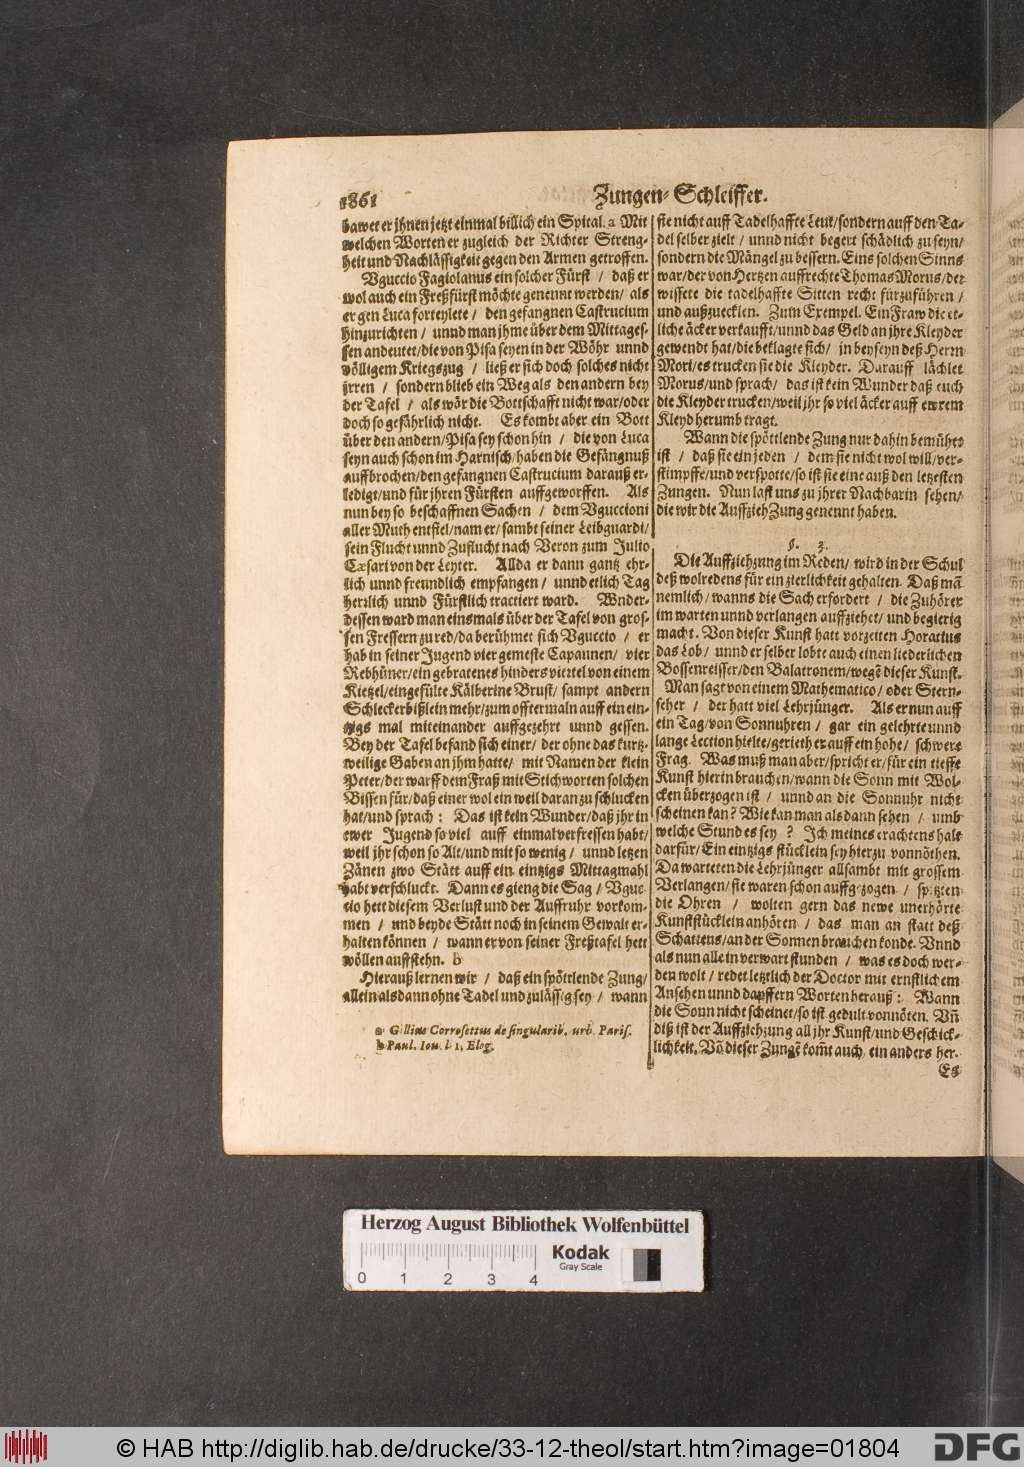 1861
Zungen-Schleiffer.
bawet er jhnen jetzt einmal billich ein Spital. a Mit
welchen Worten er zugleich der Richter Streng-
heit und Nachlässigkeit gegen den Armen getroffen.
Vguccio Fagiolanus ein solcher Fürst / daß er
wol auch ein Freßfürst möchte genennt werden / als
er gen Luca forteylete / den gefangnen Castrucium
hinzurichten / unnd man jhme über dem Mittages-
sen andeutet / die von Pisa seyen in der Wöhr unnd
völligem Kriegszug / ließ er sich doch solches nicht
jrren / sondern blieb ein Weg als den andern bey
der Tafel / als wär die Bottschafft nicht war / oder
doch so gefährlich nicht. Es kombt aber ein Bott
über den andern / Pisa sey schon hin / die von Luca
seyn auch schon im Harnisch / haben die Gefängnuß
auffbrochen / den gefangnen Castrucium darauß er-
ledigt / und für jhren Fürsten auffgeworffen. Als
nun bey so beschaffnen Sachen / dem Vguccioni
aller Muth entfiel / nam er / sambt seiner Leibguardi /
sein Flucht unnd Zuflucht nach Veron zum Julio
Cæsari von der Leyter. Allda er dann gantz ehr-
lich unnd freundlich empfangen / unnd etlich Tag
hertzlich unnd Fürstlich tractiert ward. Vnder-
dessen ward man einsmals über der Tafel von gros-
sen Fressern zu red / da berühmet sich Vguccio / er
hab in seiner Jugend vier gemeste Capaunen / vier
Rebhüner / ein gebratenes hinders viertel von einem
Kietzel / eingefülte Kälberine Brust / sampt andern
Schleckerbißlein mehr / zum offtermaln auff ein ein-
zigs mal miteinander auffgezehrt unnd gessen.
Bey der Tafel befand sich einer / der ohne das kurtz-
weilige Gaben an jhm hatte / mit Namen der klein
Peter / der warff dem Fraß mit Stichworten solchen
Bissen für / daß einer wol ein weil daran zu schlucken
hat / und sprach : Das ist kein Wunder / daß jhr in
ewer Jugend so viel auff einmal verfressen habt /
weil jhr schon so Alt / und mit so wenig / unnd letzen
Zänen zwo Stätt auff ein eintzigs Mittagmahl
habt verschluckt. Dann es gieng die Sag / Vguc-
cio hett diesem Verlust und der Auffruhr vorkom-
men / und beyde Stätt noch in seinem Gewalt er-
halten können / wann er von seiner Freßtafel hett
wöllen auffstehn. b
Hierauß lernen wir / daß ein spöttlende Zung /
allein alsdann ohne Tadel und zulässig sey / wann
a Gillius Corrosettus de singularib. urb. Paris.
b Paul. Iou. l. 1. Elog.
sie nicht auff Tadelhaffte Leut / sondern auff den Ta-
del selber zielt / unnd nicht begert schädlich zu seyn /
sondern die Mängel zu bessern. Eins solchen Sinns
war / der von Hertzen auffrechte Thomas Morus / der
wissete die tadelhaffte Sitten recht fürzuführen /
und außzuecklen. Zum Exempel. Ein Fraw die et-
liche äcker verkaufft / unnd das Geld an jhre Kleyder
gewendt hat / die beklagte sich / in beyseyn deß Herrn
Mori / es trucken sie die Kleyder. Darauff lächlet
Morus / und sprach / das ist kein Wunder daß euch
die Kleyder trucken / weil jhr so viel äcker auff ewrem
Kleyd herumb tragt.
Wann die spöttlende Zung nur dahin bemühet
ist / daß sie ein jeden / dem sie nicht wol will / ver-
stimpffe / und verspotte / so ist sie eine auß den letzesten
Zungen. Nun last uns zu jhrer Nachbarin sehen /
die wir die AuffziehZung genennt haben.
§. 3.
Die Auffziehung im Reden / wird in der Schul
deß wolredens für ein zierlichkeit gehalten. Daß mã
nemlich / wanns die Sach erfordert / die Zuhörer
im warten unnd verlangen auffziehet / und begierig
macht. Von dieser Kunst hatt vorzeiten Horatius
das Lob / unnd er selber lobte auch einen liederlichen
Bossenreisser / den Balatronem / wegẽ dieser Kunst.
Man sagt von einem Mathematico / oder Stern-
seher / der hatt viel Lehrjünger. Als er nun auff
ein Tag / von Sonnuhren / gar ein gelehrte unnd
lange Lection hielte / gerieth er auff ein hohe / schwere
Frag. Was muß man aber / spricht er / für ein tieffe
Kunst hierin brauchen / wann die Sonn mit Wol-
cken überzogen ist / unnd an die Sonnuhr nicht
scheinen kan? Wie kan man als dann sehen / umb
welche Stund es sey ? Ich meines erachtens halt
darfür / Ein eintzigs stücklein sey hierzu vonnöthen.
Da warteten die Lehrjünger allsambt mit grossem
Verlangen / sie waren schon auffgezogen / spitzten
die Ohren / wolten gern das newe unerhörte
Kunststücklein anhören / das man an statt deß
Schattens / an der Sonnen brauchen konde. Vnnd
als nun alle in verwart stunden / was es doch wer-
den wolt / redet letzlich der Doctor mit ernstlichem
Ansehen unnd dapffern Worten herauß : Wann
die Sonn nicht scheinet / so ist gedult vonnöten. Vñ
diß ist der Auffziehzung all jhr Kunst / und Geschick-
lichkeit. Võ dieser Zungẽ kom̃t auch ein anders her.
Es
Herzog August Bibliothek Wolfenbüttel
0 1 2 3 4
Kodak
Gray Scale
© HAB http://diglib.hab.de/drucke/33-12-theol/start.htm?image=01804
DFG